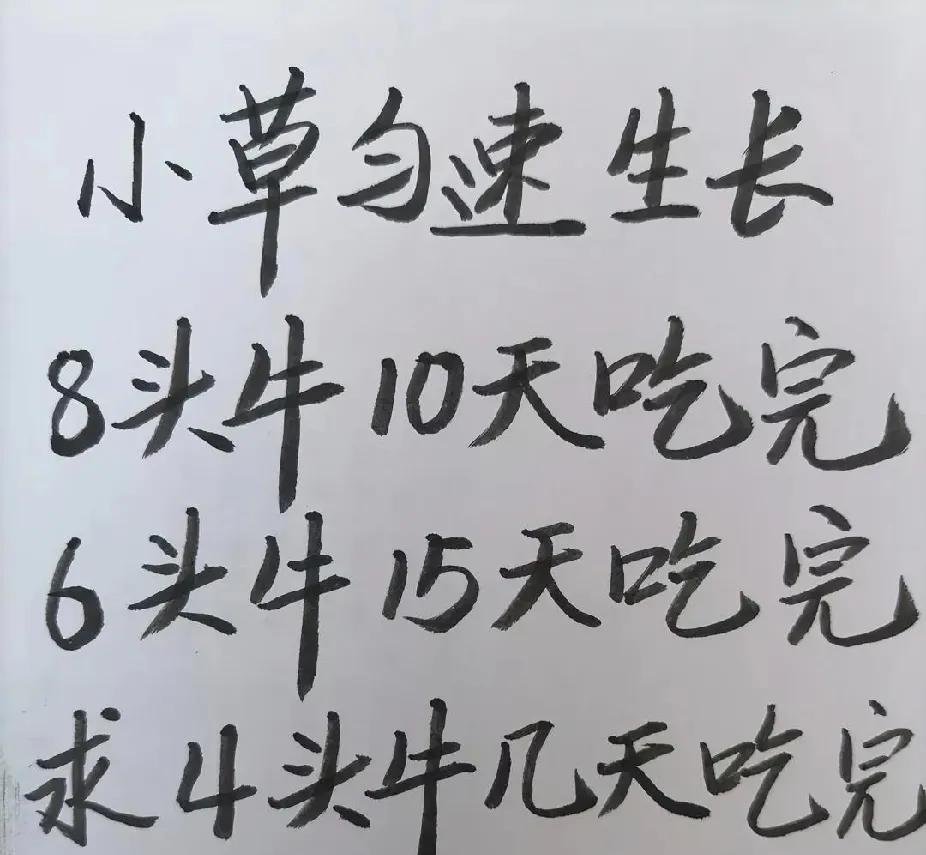 小草匀速生长
8头牛10天吃完
6头牛15天吃完
求4头牛几天吃完